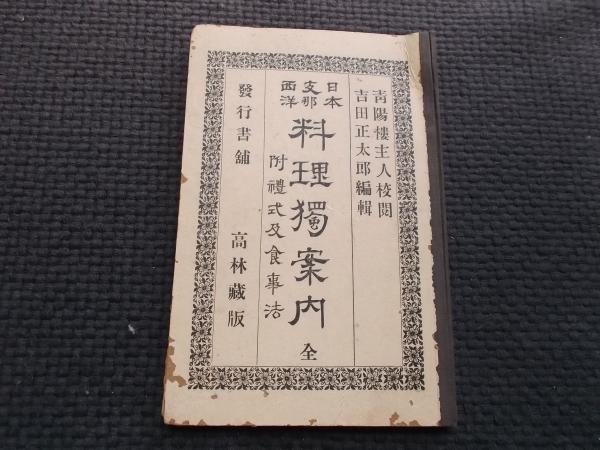 青陽樓主人校閲
吉田正太郎編輯
日本
支那
西洋
料理獨案内 全
附禮式及食事法
發行書舖 高林藏版